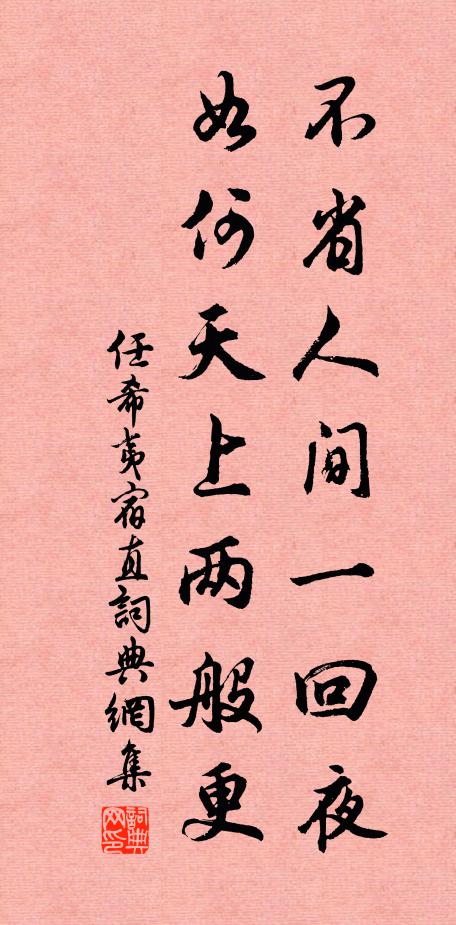 不省人间一回夜
如何天上两般更
任希夷宿直詞典網集
詞典网印